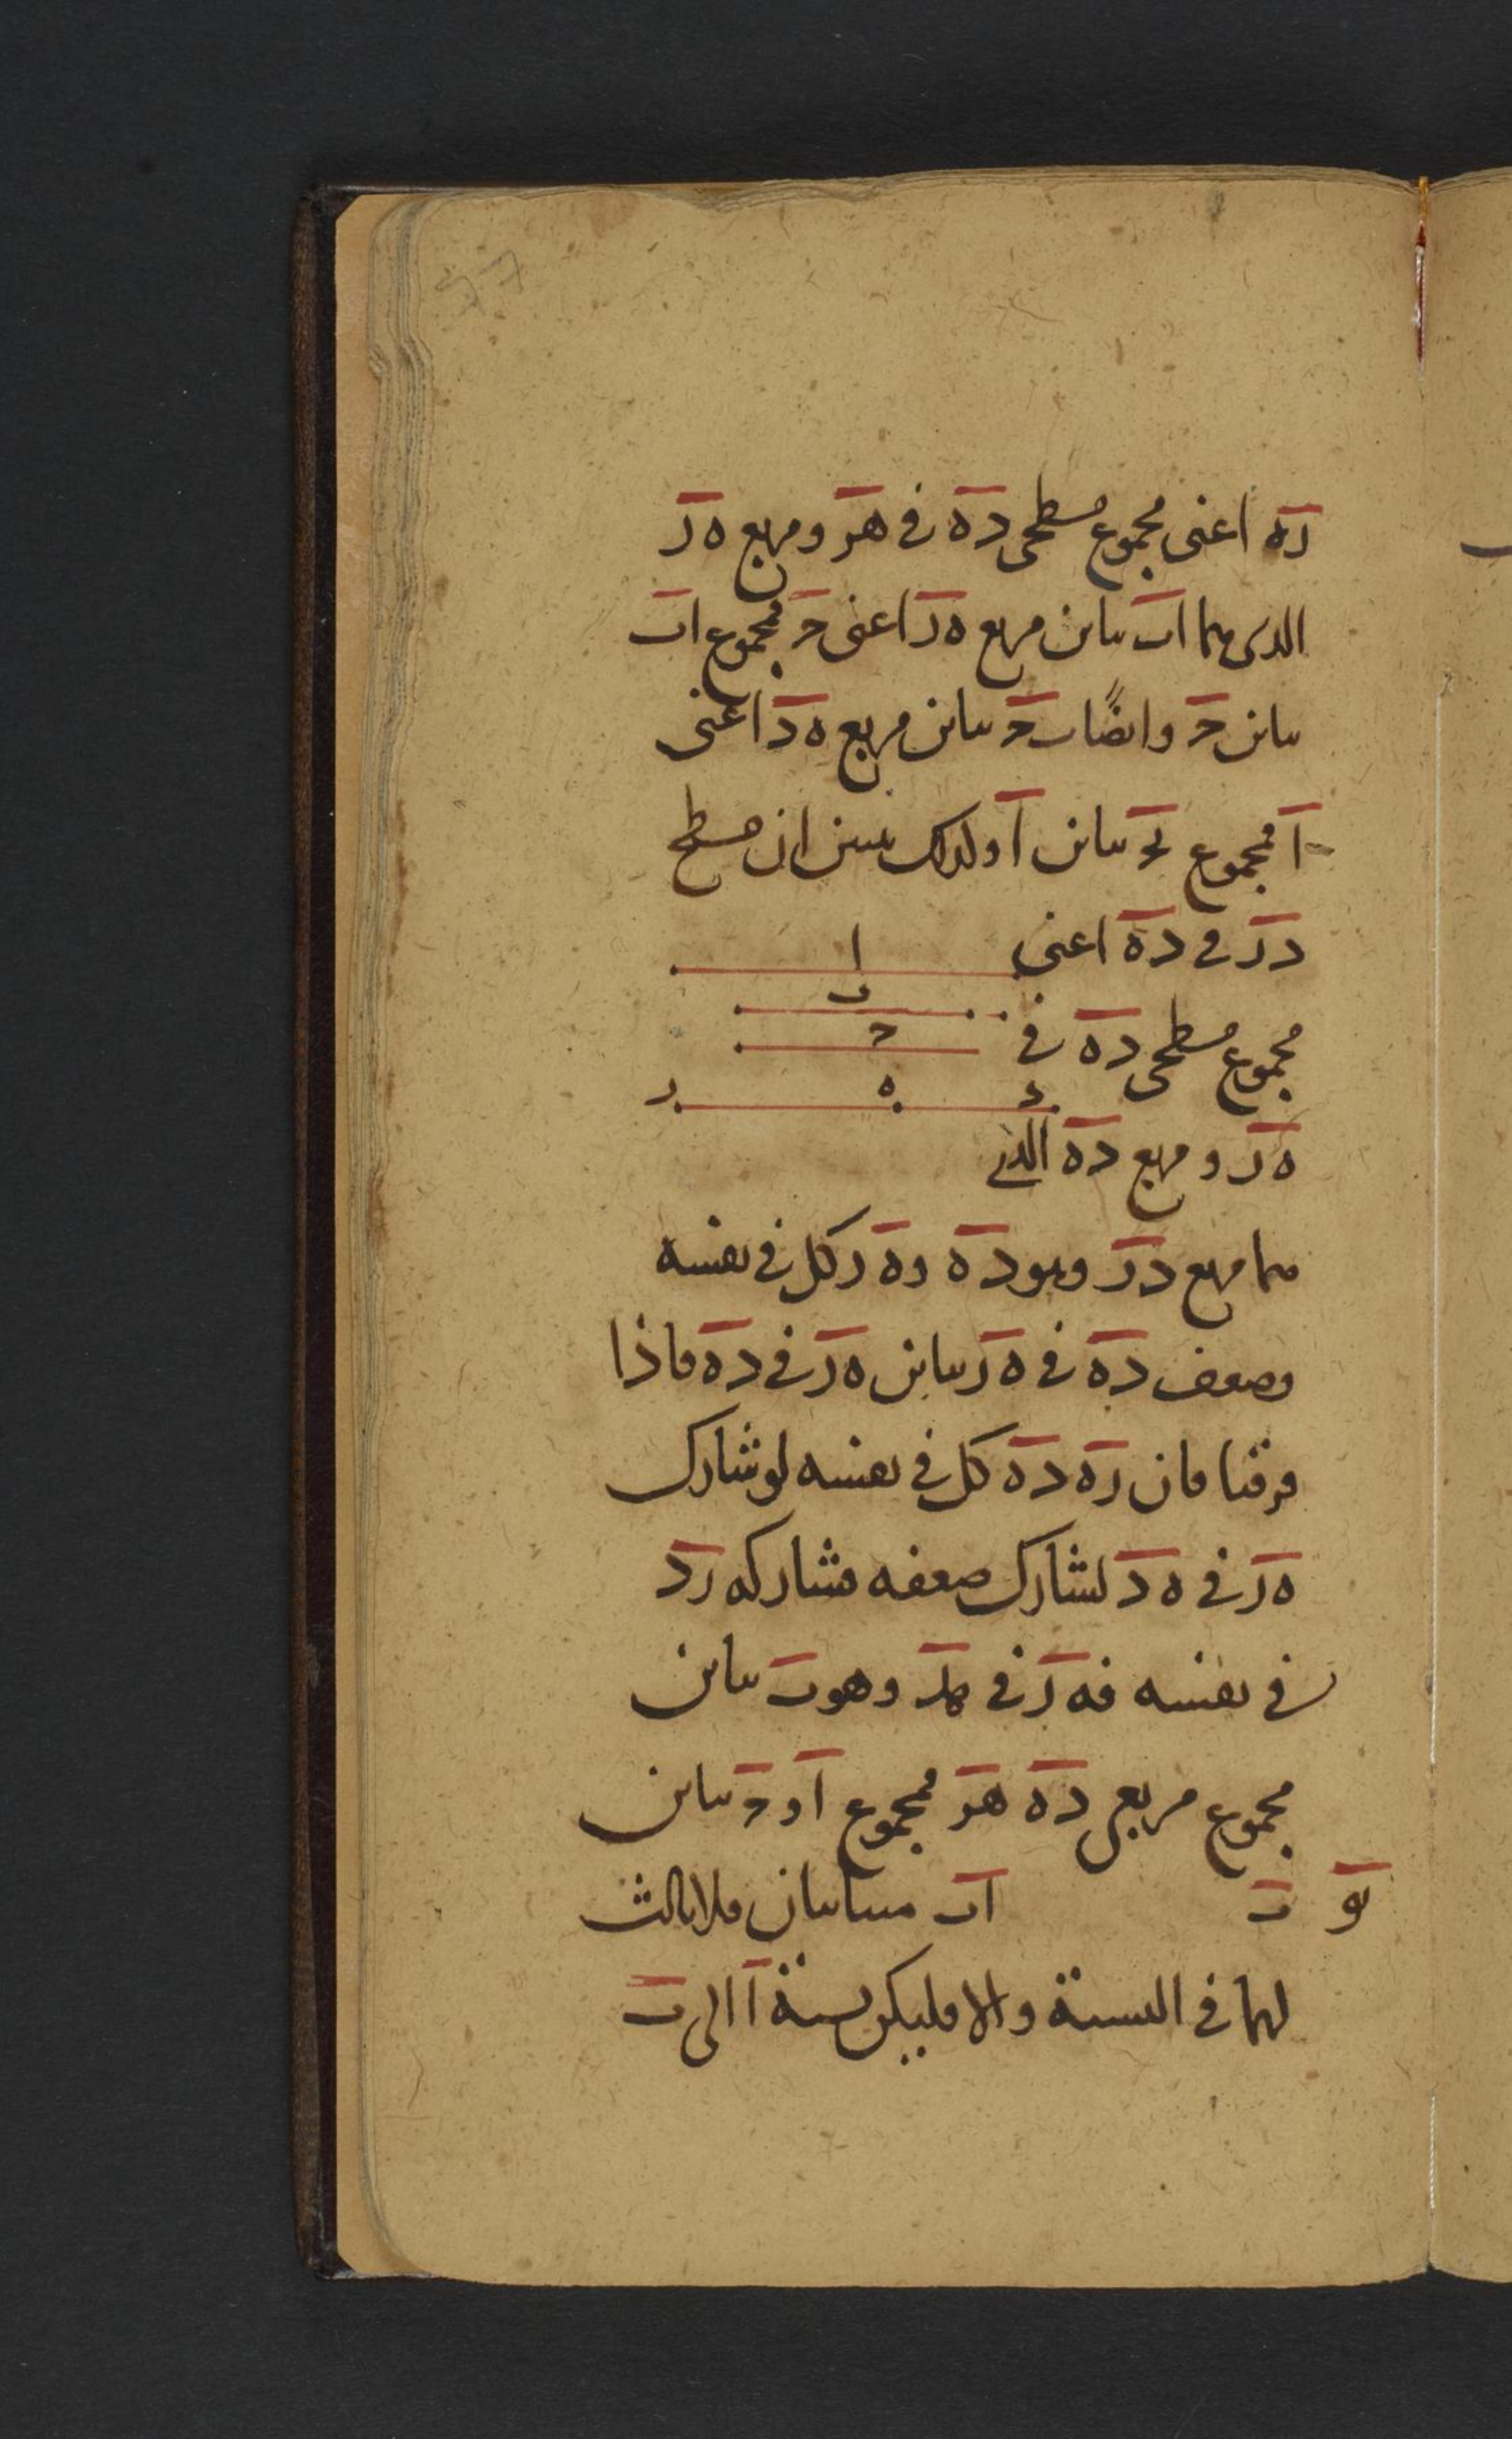 ره اعنى مجموع مسطحى ده فى هز ومربع ه ز
الذى هما اب ىباىن مربع ه ز اعنى ح فمجموع اب
ىباىن ح واىضًا ب ح ىباىن مربع ه د اعنى
ا فمجموع بح ىباىن ا ولذلك نبىن ان مسطح
د ز فى ده اعنى
ا
ب
مجموع مسطحى ده فى
ح
د ه ز
ه ز و مربع ده الذى
هما مربع د ز وهو ده و ه ز كل فى نفسه
وضعف ده فى ه ز ىباىن ه ز فى ده فاذا
فرقنا فان زه ده كل فى نفسه لو شارك
ه ز فى ه د لشارك ضعفه فشاركه زد
فى نفسه فه ز فى هد وهو ب ىباىن
مجموع مربعى ده هز فمجموع ا و ح ىباىن
ب
يو اب متباىنان فلا ثالث
لهما فى النسبة والا فليكن نسبة ا الى ب